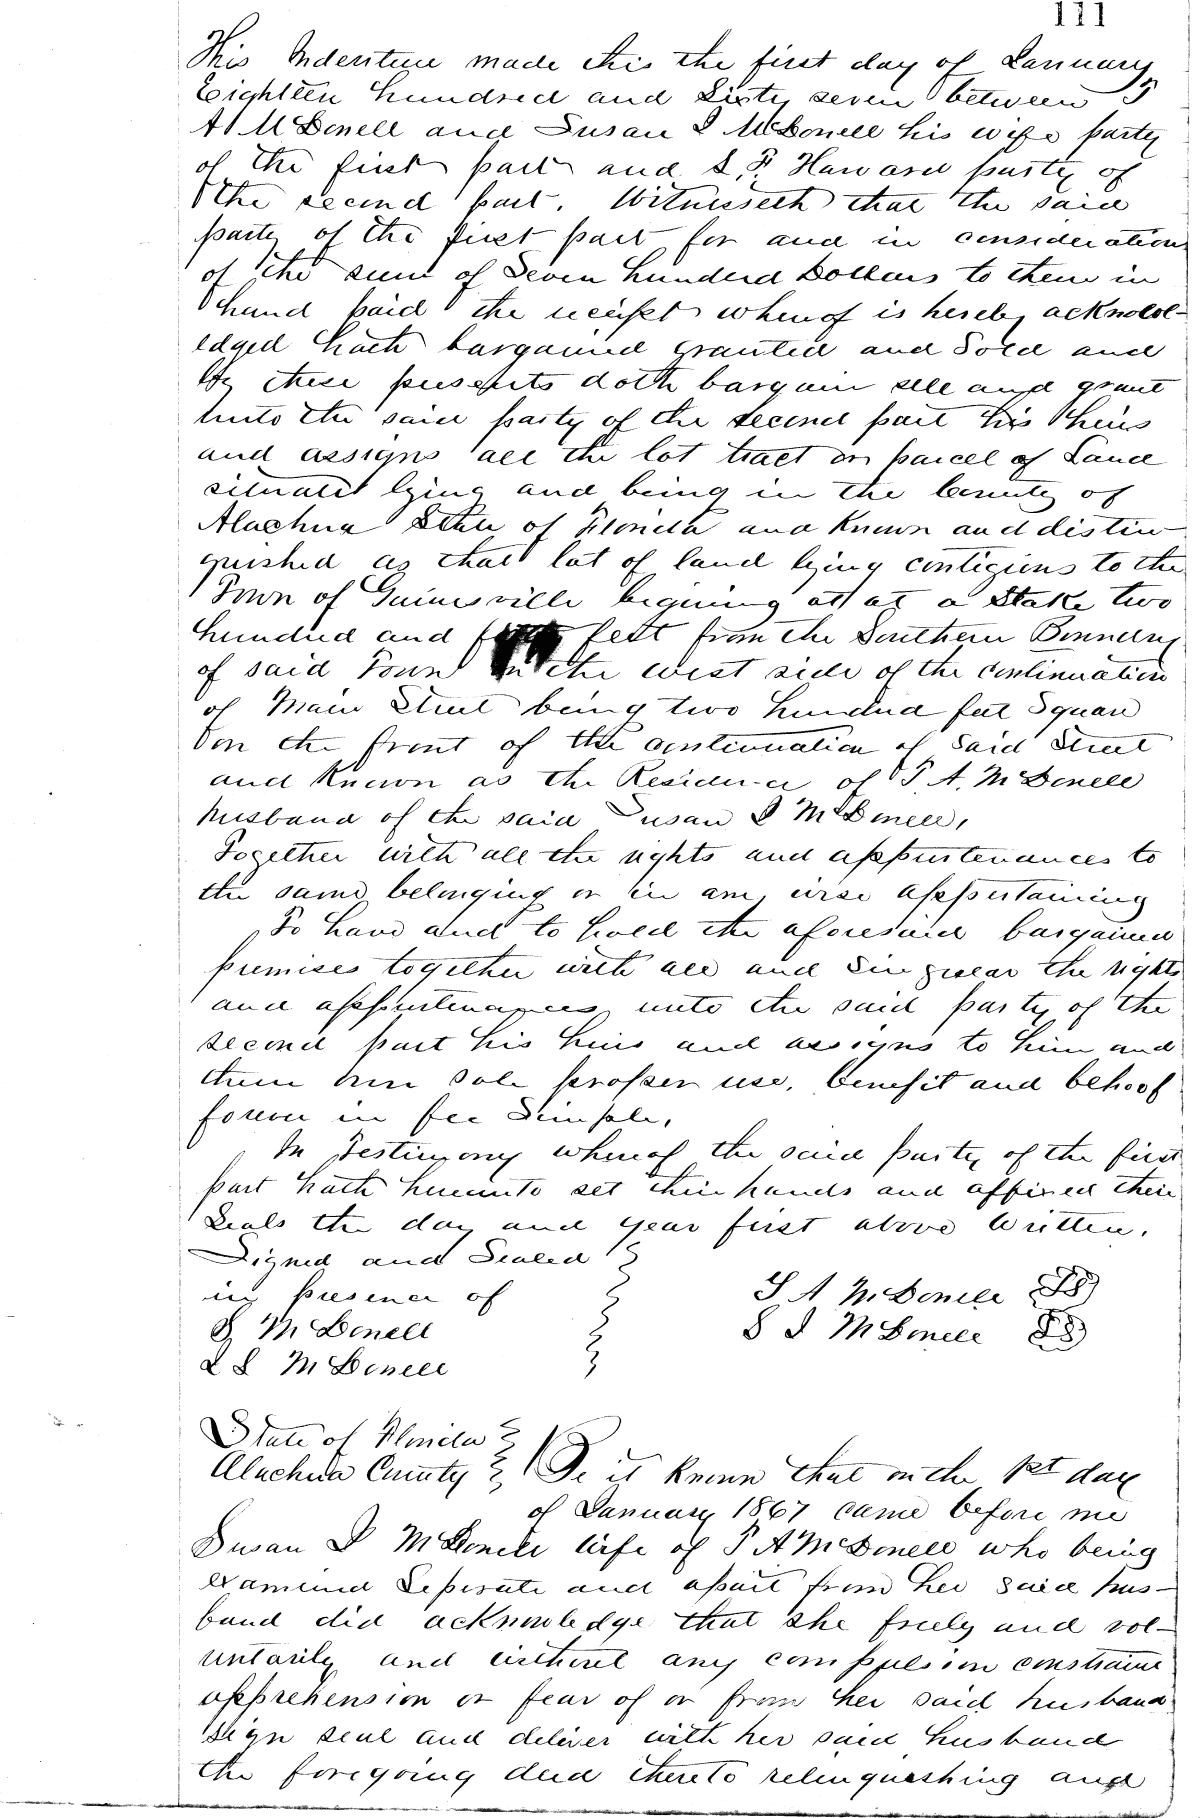 111
This Indenture made this the first day of January
Eighteen hundred and Sixty seven between
A McDonell and Susan I McDonell his wife party
of the first part and S. F. Haward party of
the second part. Witnesseth that the said
party of the first part for and in consideration
of the sum of Seven hundred Dollars to them in
hand paid the receipt whereof is hereby acknowl-
edged hath bargained granted and Sold and
by these presents doth bargain sell and grant
unto the said party of the second part his heirs
and assigns all the lot tract or parcel of Land
situated lying and being in the County of
Alachua State of Florida and Known and distin-
guished as that lot of land lying contigious to the
Town of Gainesville begining at at a Stake two
hundred and feet from the Southern Bonndry
of said Town the west side of the continuation
of Main Street being two hundred feet Square
on the front of the continuation of Said Street
and Known as the Residence of T. A. McDonell
husband of the said Susan I McDonell,
Together with all the rights and appurtenances to
the same belonging or in any wise appurtaining
To have and to hold the aforesaid bargained
premises together with all and Singular the rights
and appurtenances unto the said party of the
second part his heirs and assigns to him and
them own Sole propper use, benefit and behoof
forever in fee Simple,
In Testimony whereof the said party of the first
part hath hereunto set their hands and affixed their
Seals the day and year first above Written.
Signed and Sealed
in presence of
T A McDonell
S McDonell
S I McDonell
McDonell
State of Florida
Alachua County Be it known that on the 1st day
of January 1867 came before me
Susan I McDonell wife of T A McDonell who being
examined Seperate and apart from her said hus-
band did acknowledge that she freely and vol-
untarily and without any compulsion constraint
apprehension or fear of or from her said husband
sign seal and deliver with her said husband
the foregoing deed thereto relinquashing and